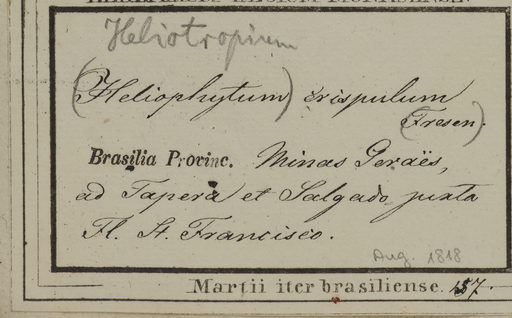 Heliotropium
(Heliophytum) crispulum
(Fresen).
Brasilia Provinc. Minas Geraës,
ad Tapera et Salgado, juxta
Fl. St. Francisco.
Aug. 1818
Martii iter brasiliense. 157.